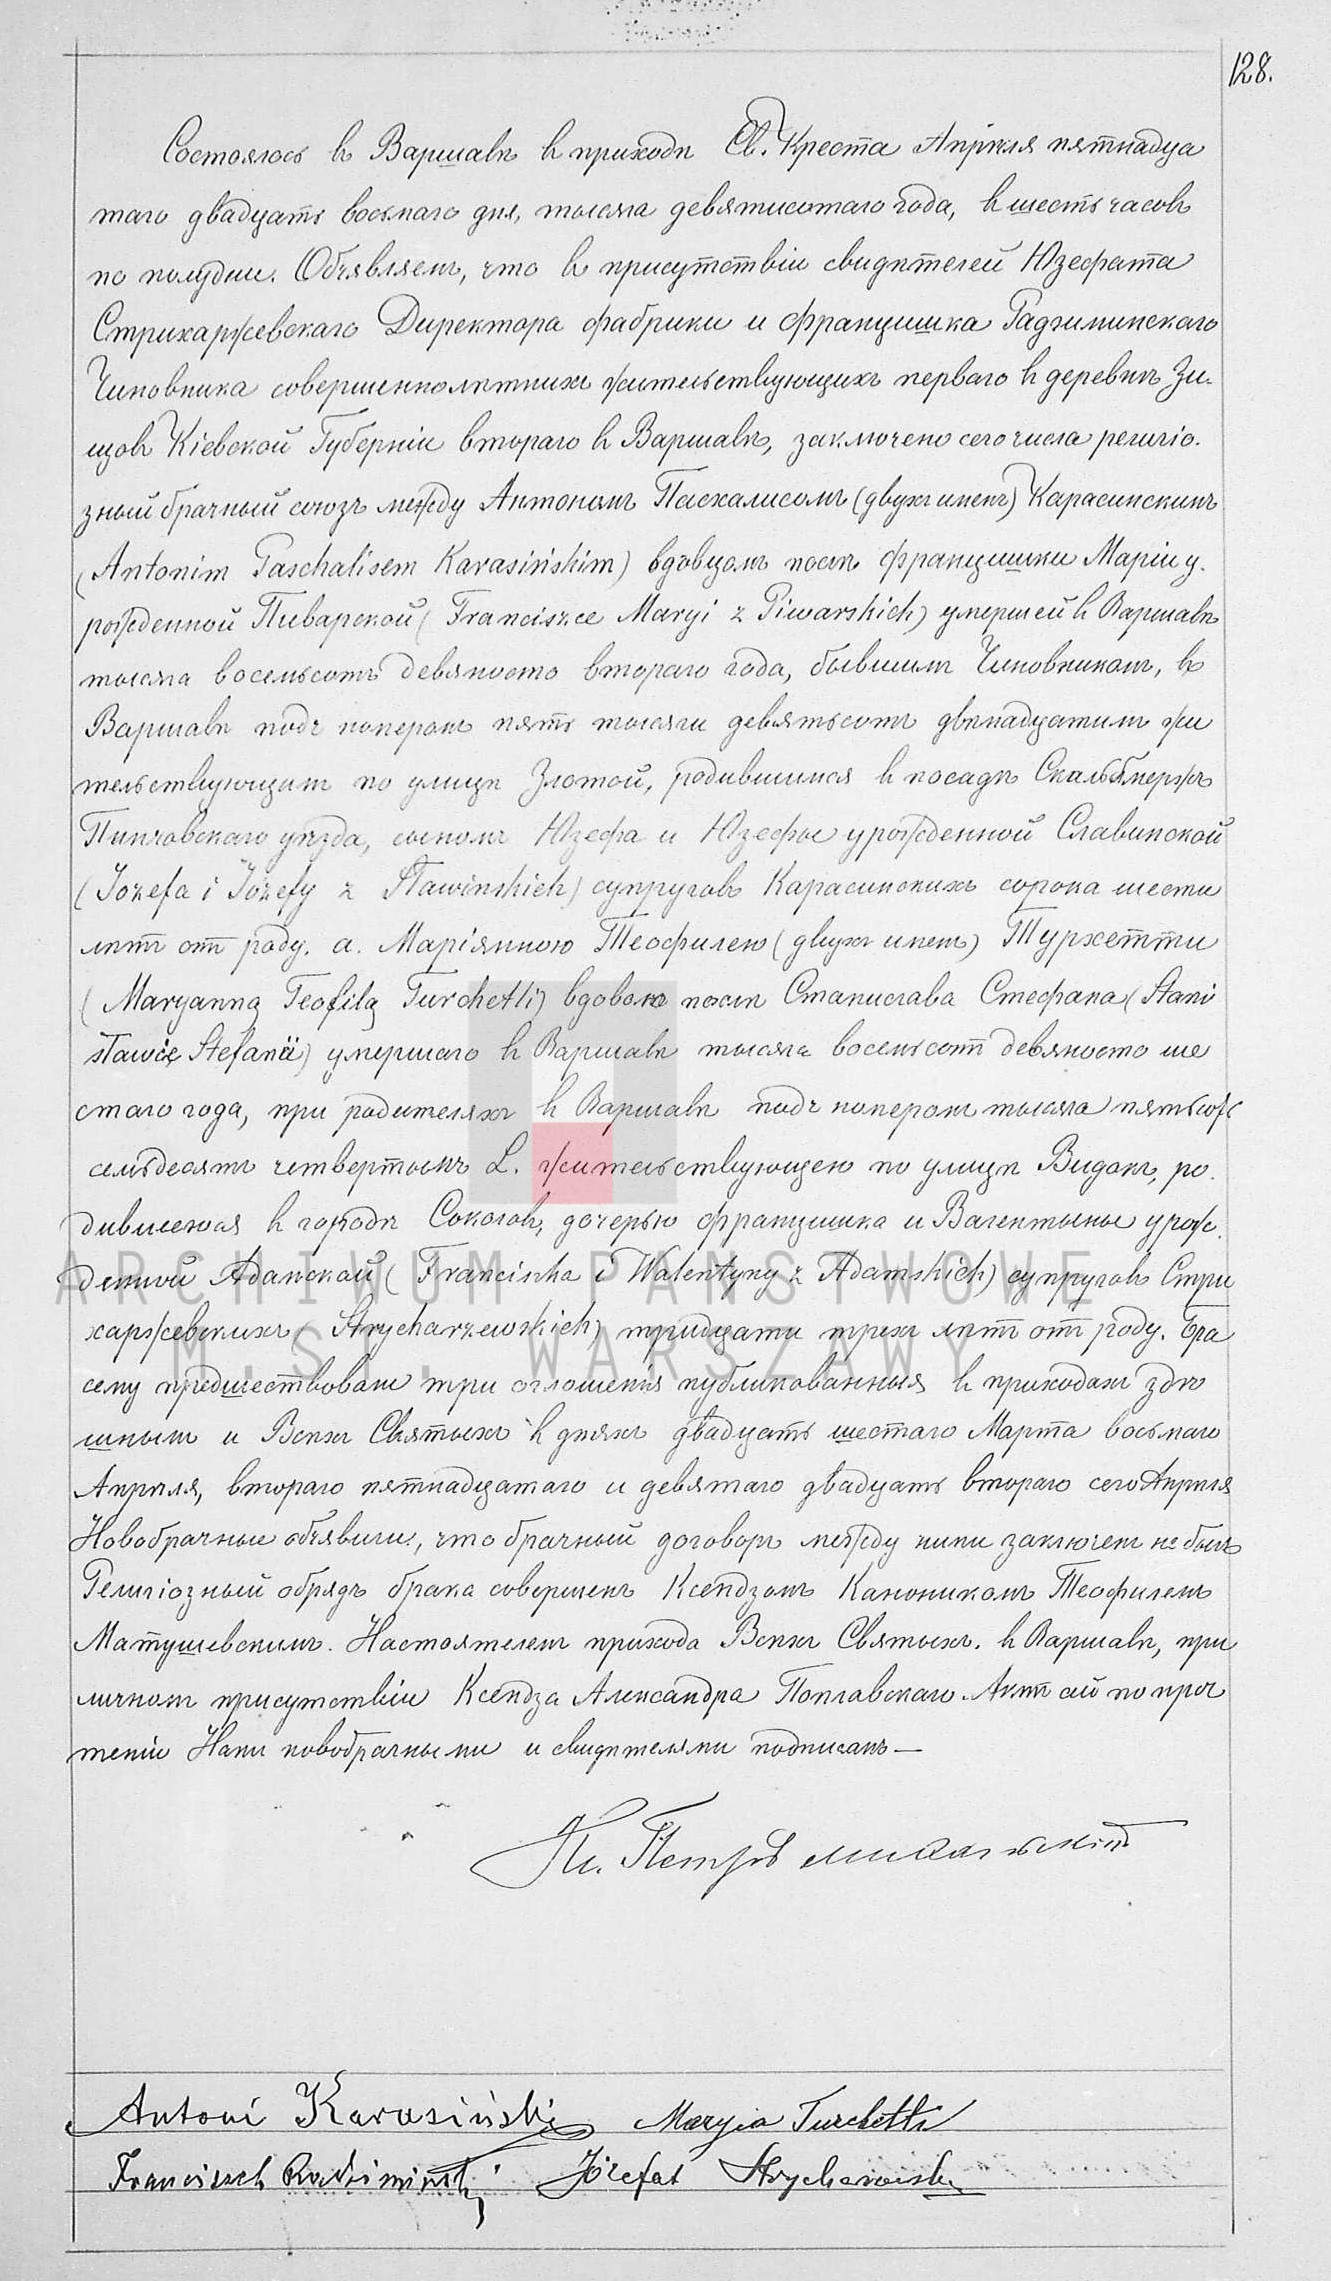 128.
Состоялось въ Варшавѣ въ приходѣ Св. Креста Апрѣля пятнадца
таго двадцать восьмаго дня, тысяча девятисотаго года, въ шесть часовъ
по полудни. Объявляемъ, что въ присутствіи свидѣтелей Юзефата
Стрихаржевскаго Директора фабрики и Францишка Радзиминскаго
Чиновника совершеннолѣтнихъ жительствующихъ перваго въ деревнѣ Зи-
цовъ Кіевской Губерніи втораго въ Варшавѣ, заключено сего числа религіо-
зный брачный союзъ между Антономъ Пасхалисомъ (двухъ именъ) Карасинскимъ
(Antonim Paschalisem Karasińskim) вдовцомъ послѣ Францишки Маріи у-
рожденной Пиварской (Franciszce Maryi z Piwarskich) умершей въ Варшавѣ
тысяча восемьсотъ девяносто втораго года, бывшимъ Чиновникомъ, въ
Варшавѣ подъ номеромъ пять тысячи девятьсотъ двѣнадцатымъ жи
тельствующимъ по улицѣ Злотой, родившимся въ посадѣ Скальбмержъ
Пинчовскаго уѣзда, сыномъ Юзефа и Юзефы урожденной Славинской
(Józefa i Józefy z Sławinskich) супруговъ Карасинскихъ сорока шести
лѣтъ отъ роду. а. Маріянною Теофилею (двухъ именъ) Турхетти
(Maryanną Teofilą Turchetti) вдовою послѣ Станислава Стефана (Stani
sławie Stefanie) умершаго въ Варшавѣ тысяча восемьсотъ девяносто ше
стаго года, при родителяхъ въ Варшавѣ подъ номеромъ тысяча пятьсотъ
семьдесятъ четвертымъ L. жительствующею по улицѣ Видокъ, ро-
дившеюся въ городѣ Соколовѣ, дочерью Францишка и Валентыны урож-
денной Адамской (Franciszka i Walentyny z Adamskich) супруговъ Стри
харжевскихъ (Strycharzewskich) тридцати трехъ лѣтъ отъ роду. Бра
сему предшествовали три оглошенія публикованныя въ приходахъ здѣ
шнымъ и Всѣхъ Святыхъ въ дняхъ двадцать шестаго Марта восьмаго
Апрѣля, втораго пятнадцатаго и девятаго двадцать втораго сего Апрѣля
Новобрачные объявили, что брачный договоръ между ними заключенъ не былъ
Религіозный обрядъ брака совершенъ Ксендзомъ Каноникомъ Теофилемъ
Матушевскимъ. Настоятелемъ прихода Всѣхъ Святыхъ. въ Варшавѣ, при
личномъ присутствіи Ксендза Александра Поплавскаго. Актъ сей по проч
теніи Нами новобрачными и свидѣтелями подписанъ —
Кс. Петръ
Antoni Karasiński Maryia Turchetti
Franciszek Radzimiński Józefat Strycharzewski
ARCHIWUM PAŃSTWOWE
M.ST. WARSZAWY